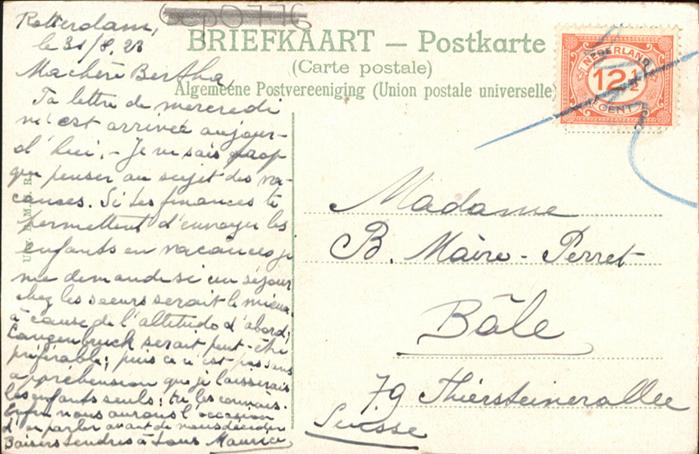 Rotterdam,
le 31/8. 23
BRIEFKAART – Postkarte
(Carte postale)
Algemeene Postvereeniging (Union postale universelle)
NEDERLAND
12½
CENT
Ma chère Bertha,
Ta lettre de mercredi
m'est arrivée aujour-
d'hui. – Je ne sais trop
que penser au sujet des va-
cances. Si tes finances te
permettent d'envoyer les
enfants en vacances je
me demande si un séjour
chez les soeurs serait le mieux
à cause de l'altitude d'abord;
Langenbruck serait peut-être
préférable; puis ce n'est pas sans
appréhension que je laisserais
les enfants seuls; tu les connais.
Enfin nous aurons l'occasion
d'en parler avant de nous décider
Baisers tendres à tous Maurice
Madame
B. Maire-Perret
Bâle
79 Thiersteinerallee
Suisse